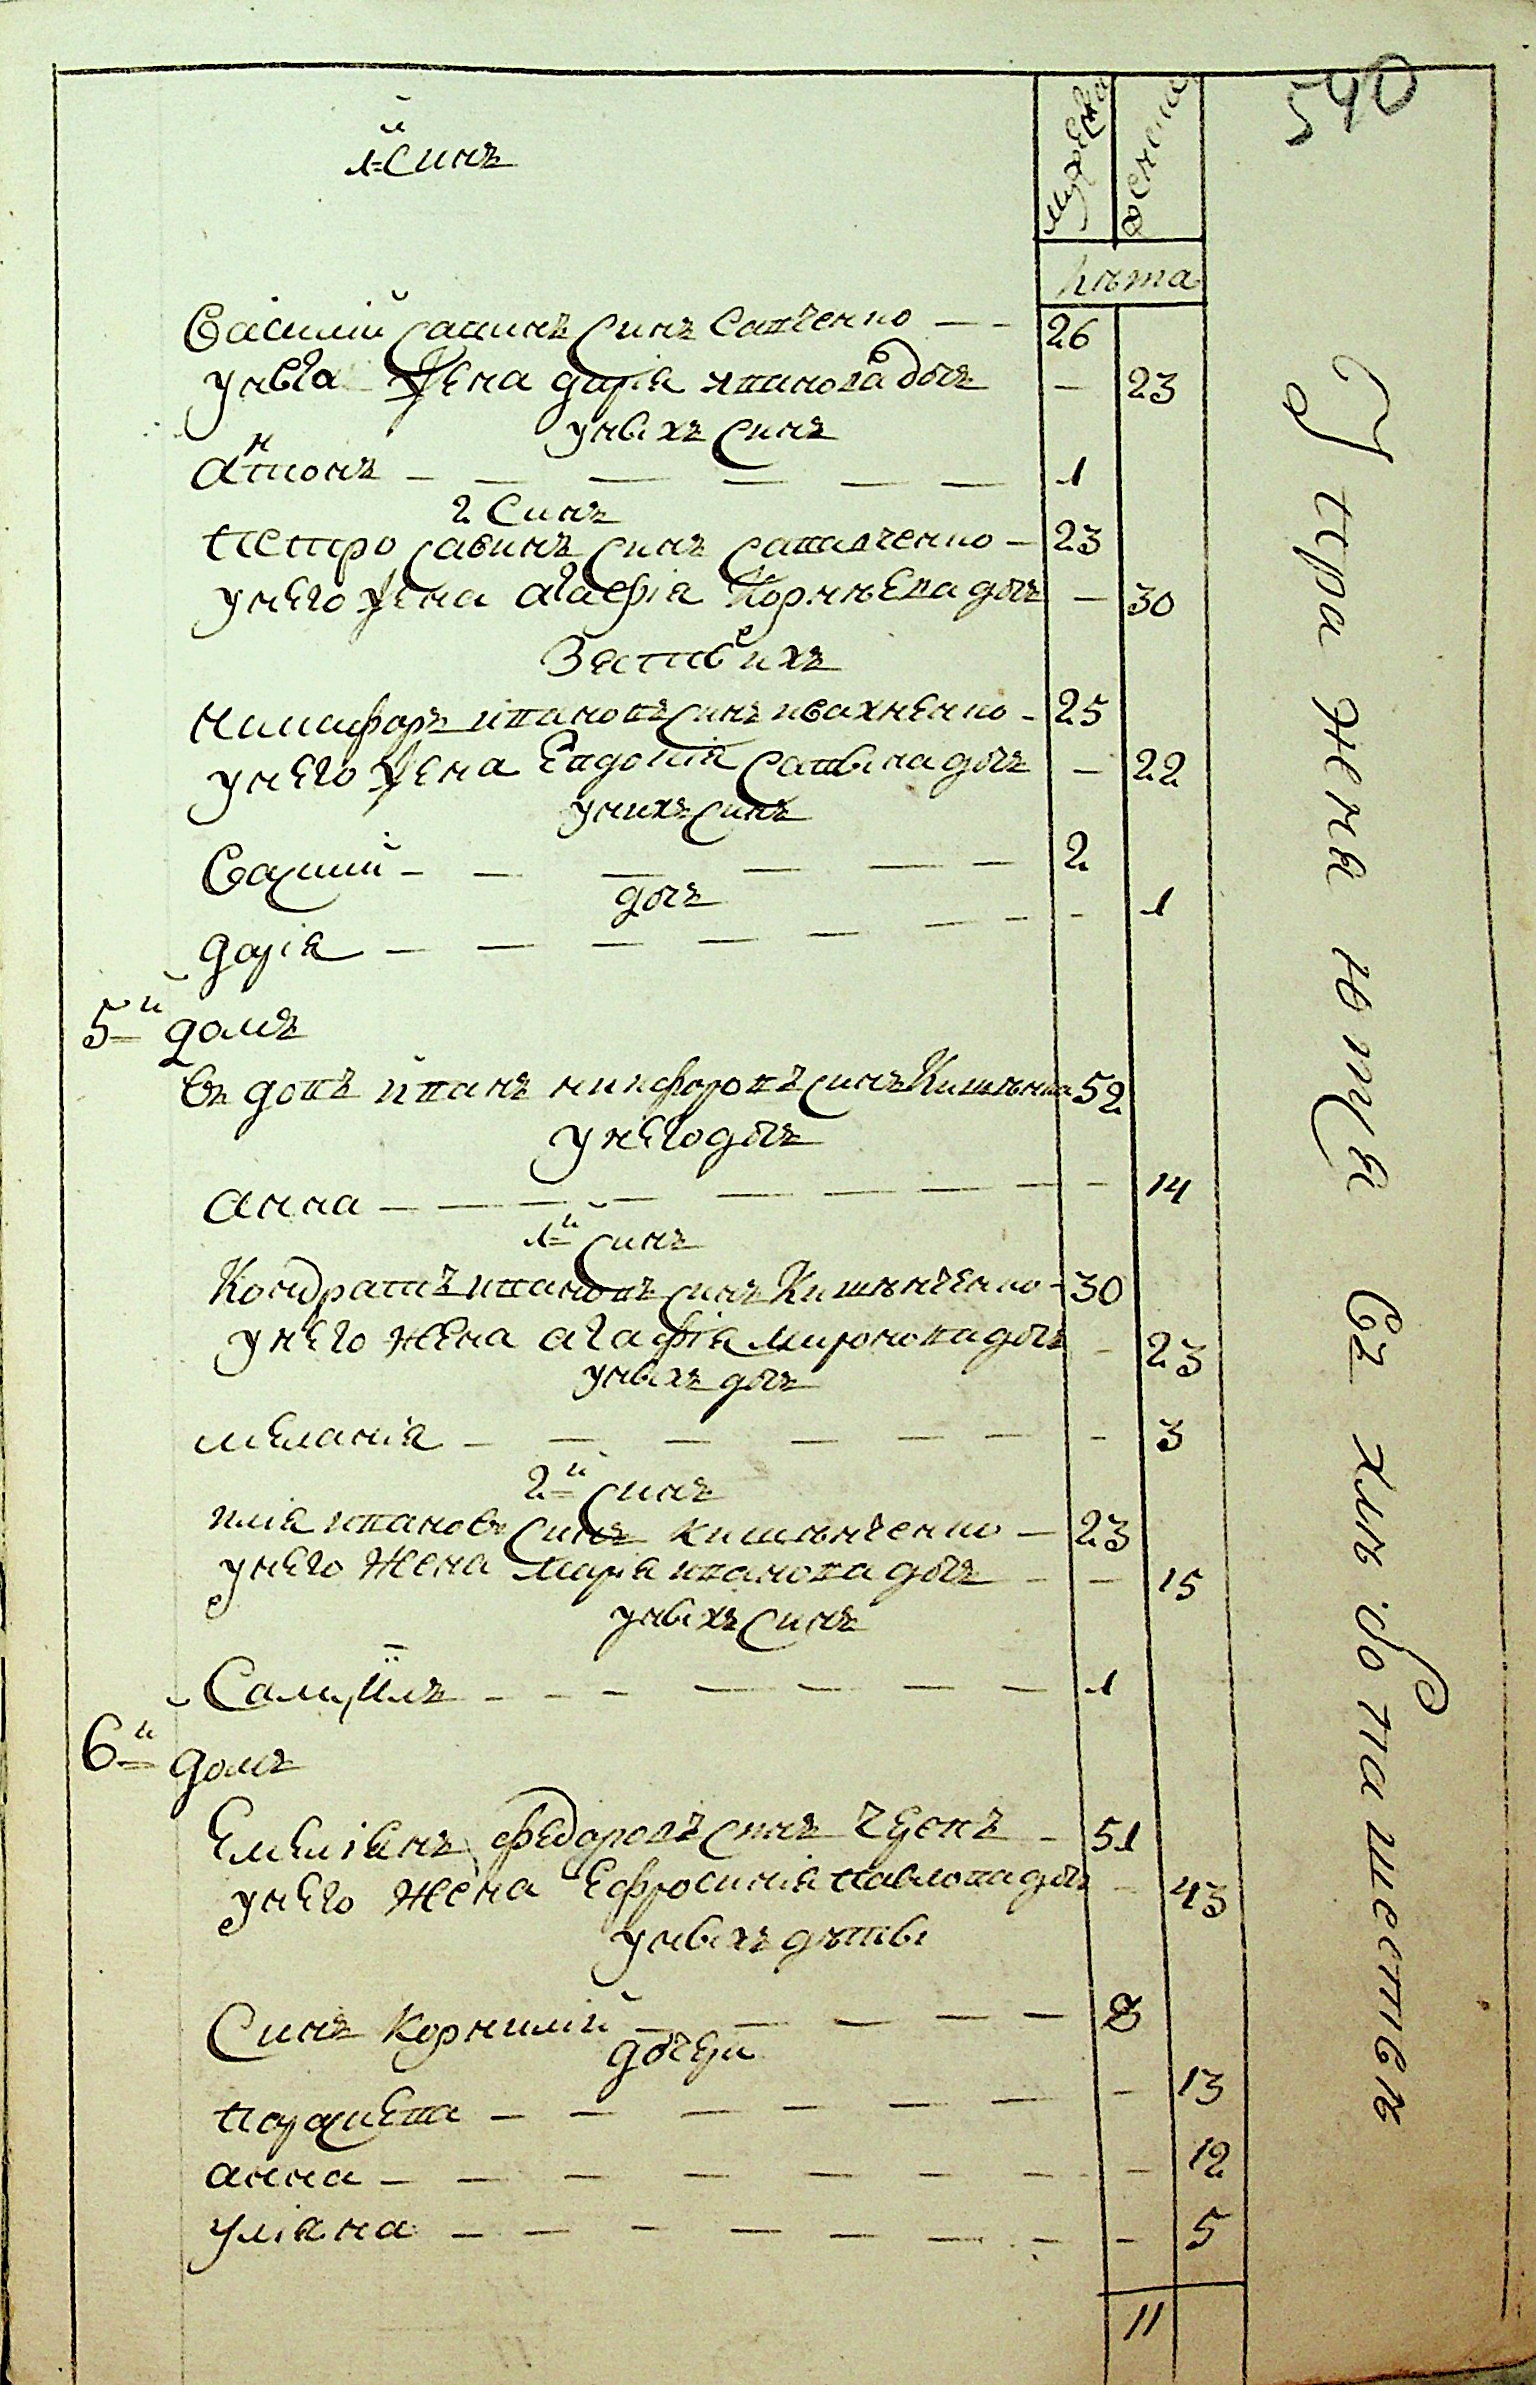 540
мужеска
женска
лѣта
1й Синъ
Василий Савинъ Синъ Савченко — 26
у него Жена дарія иванова дочъ — 23
у нихъ Синъ
антонъ — 1
2 Синъ
петро Савинъ Синъ Савченко — 23
у него Жена агафія Корнѣева дочъ — 30
Зять ихъ
никифоръ ивановъ Синъ ивахненко — 25
у него Жена Евдокія Саввина дочъ — 22
у нихъ Синъ
Василий — 2
дочъ
дарія — 1
5й домъ
въ довъ иванъ никифоровъ Синъ 52
у него дочъ
анна — 14
1й Синъ
Кондратъ ивановъ Синъ Кишѣнченко — 30
у него жена агафія миронова дочъ — 23
у нихъ дочъ
меланія — 3
2й Синъ
илія ивановъ Синъ кишѣнченко — 23
у него Жена марія иванова дочъ — 15
у нихъ Синъ
Самуилъ — 1
6й домъ
Емеліянъ федоровъ Синъ — 51
у него жена Ефросинія павлова дочъ — 43
у нихъ дѣти
Синъ Корнилий — 8
дочери
параскева — 13
анна — 12
уліяна — 5
11
въ